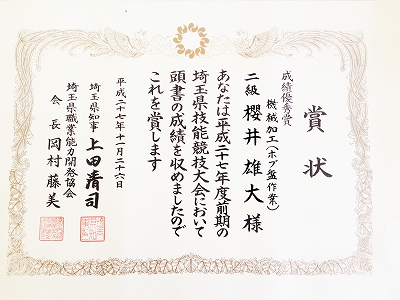 賞状
成績優秀賞
機械加工(ホブ盤作業)
二級 櫻井雄大様
あなたは平成二十七年度前期の
埼玉県技能競技大会において
頭書の成績を収めましたので
これを賞します
平成二十七年十一月二十六日
埼玉県知事 上田清司
埼玉県職業能力開発協会
会長 岡村藤美